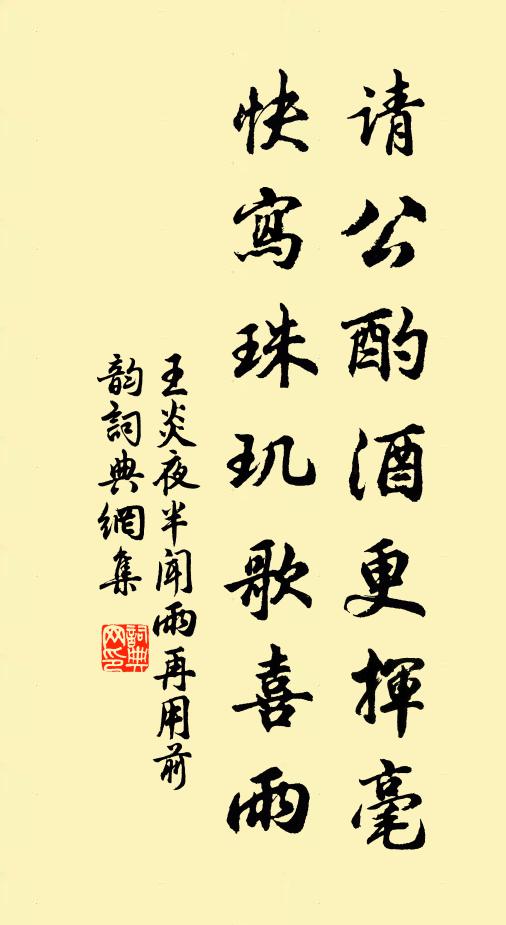 请公酌酒更揮毫
快寫珠玑歌喜雨
王炎夜半闻雨再用前
韵詞典網集
詞典
网印